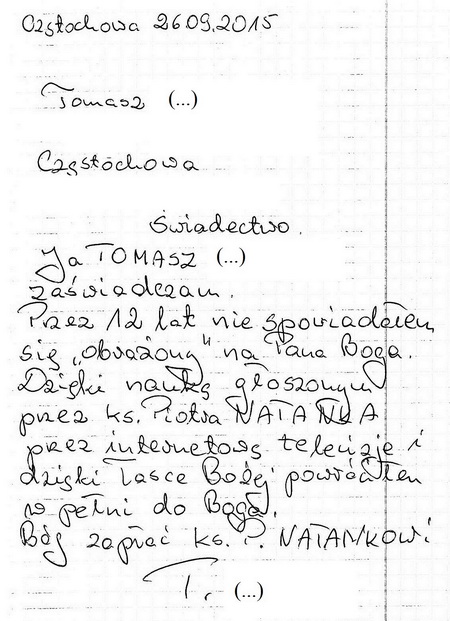 Częstochowa 26.09.2015
Tomasz (...)
Częstochowa
Świadectwo.
Ja TOMASZ (...)
zaświadczam.
Przez 12 lat nie spowiadałem
się „obrażony" na Pana Boga.
Dzięki nauką głoszonym
przez ks. Piotra NATANKA
przez internetową telewizje i
dzięki Łasce Bożej powróciłem
w pełni do Boga.
Bóg zapłać ks. P. NATANKOWI
T. (...)